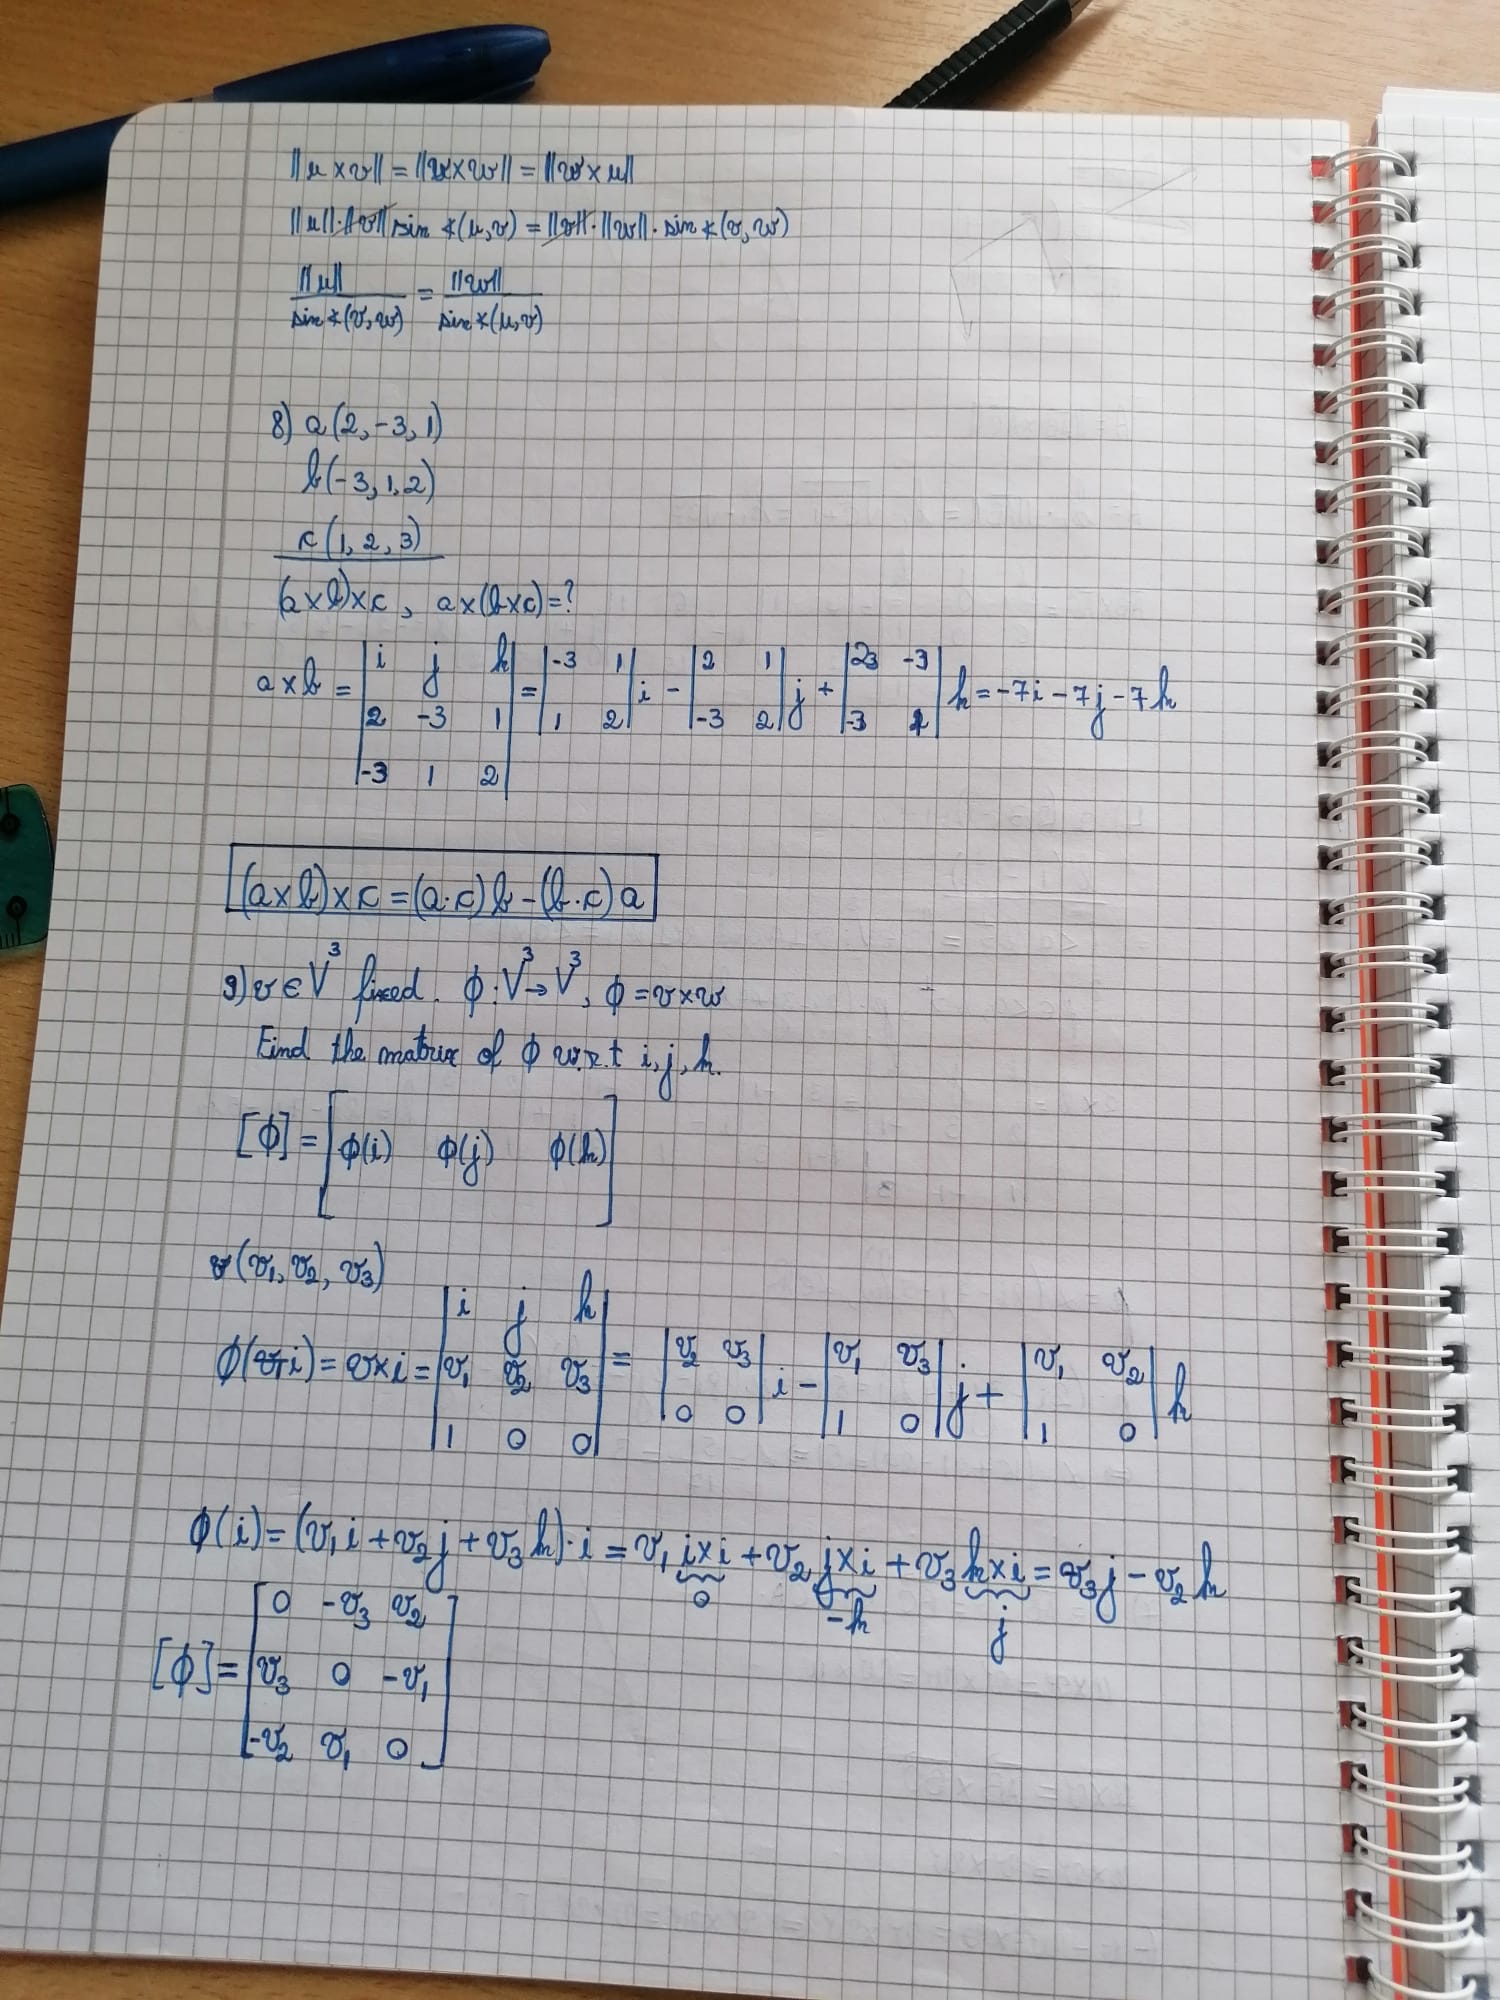 ||u×v|| = ||v×w|| = ||w×u||
||u||·||v|| sin ∢(u,v) = ||v||·||w||·sin ∢(v,w)
||u|| / sin∢(v,w) = ||w|| / sin∢(u,v)
8) a(2,-3,1)
b(-3,1,2)
c(1,2,3)
(a×b)×c, a×(b×c)=?
a×b = |i j k; 2 -3 1; -3 1 2| = |-3 1; 1 2| i - |2 1; -3 2| j + |2 -3; -3 1| k = -7i - 7j - 7k
(a×b)×c = (a·c)b - (b·c)a
9) v∈V³ fixed. ϕ:V³→V³, ϕ=v×w
Find the matrix of ϕ w.r.t i,j,k.
[ϕ] = [ϕ(i) ϕ(j) ϕ(k)]
v(v₁,v₂,v₃)
ϕ(i) = v×i = |i j k; v₁ v₂ v₃; 1 0 0| = |v₂ v₃; 0 0| i - |v₁ v₃; 1 0| j + |v₁ v₂; 1 0| k
ϕ(i) = (v₁i + v₂j + v₃k)·i = v₁ i×i + v₂ j×i + v₃ k×i = v₃j - v₂k
0 -k j
[ϕ] = [0 -v₃ v₂; v₃ 0 -v₁; -v₂ v₁ 0]